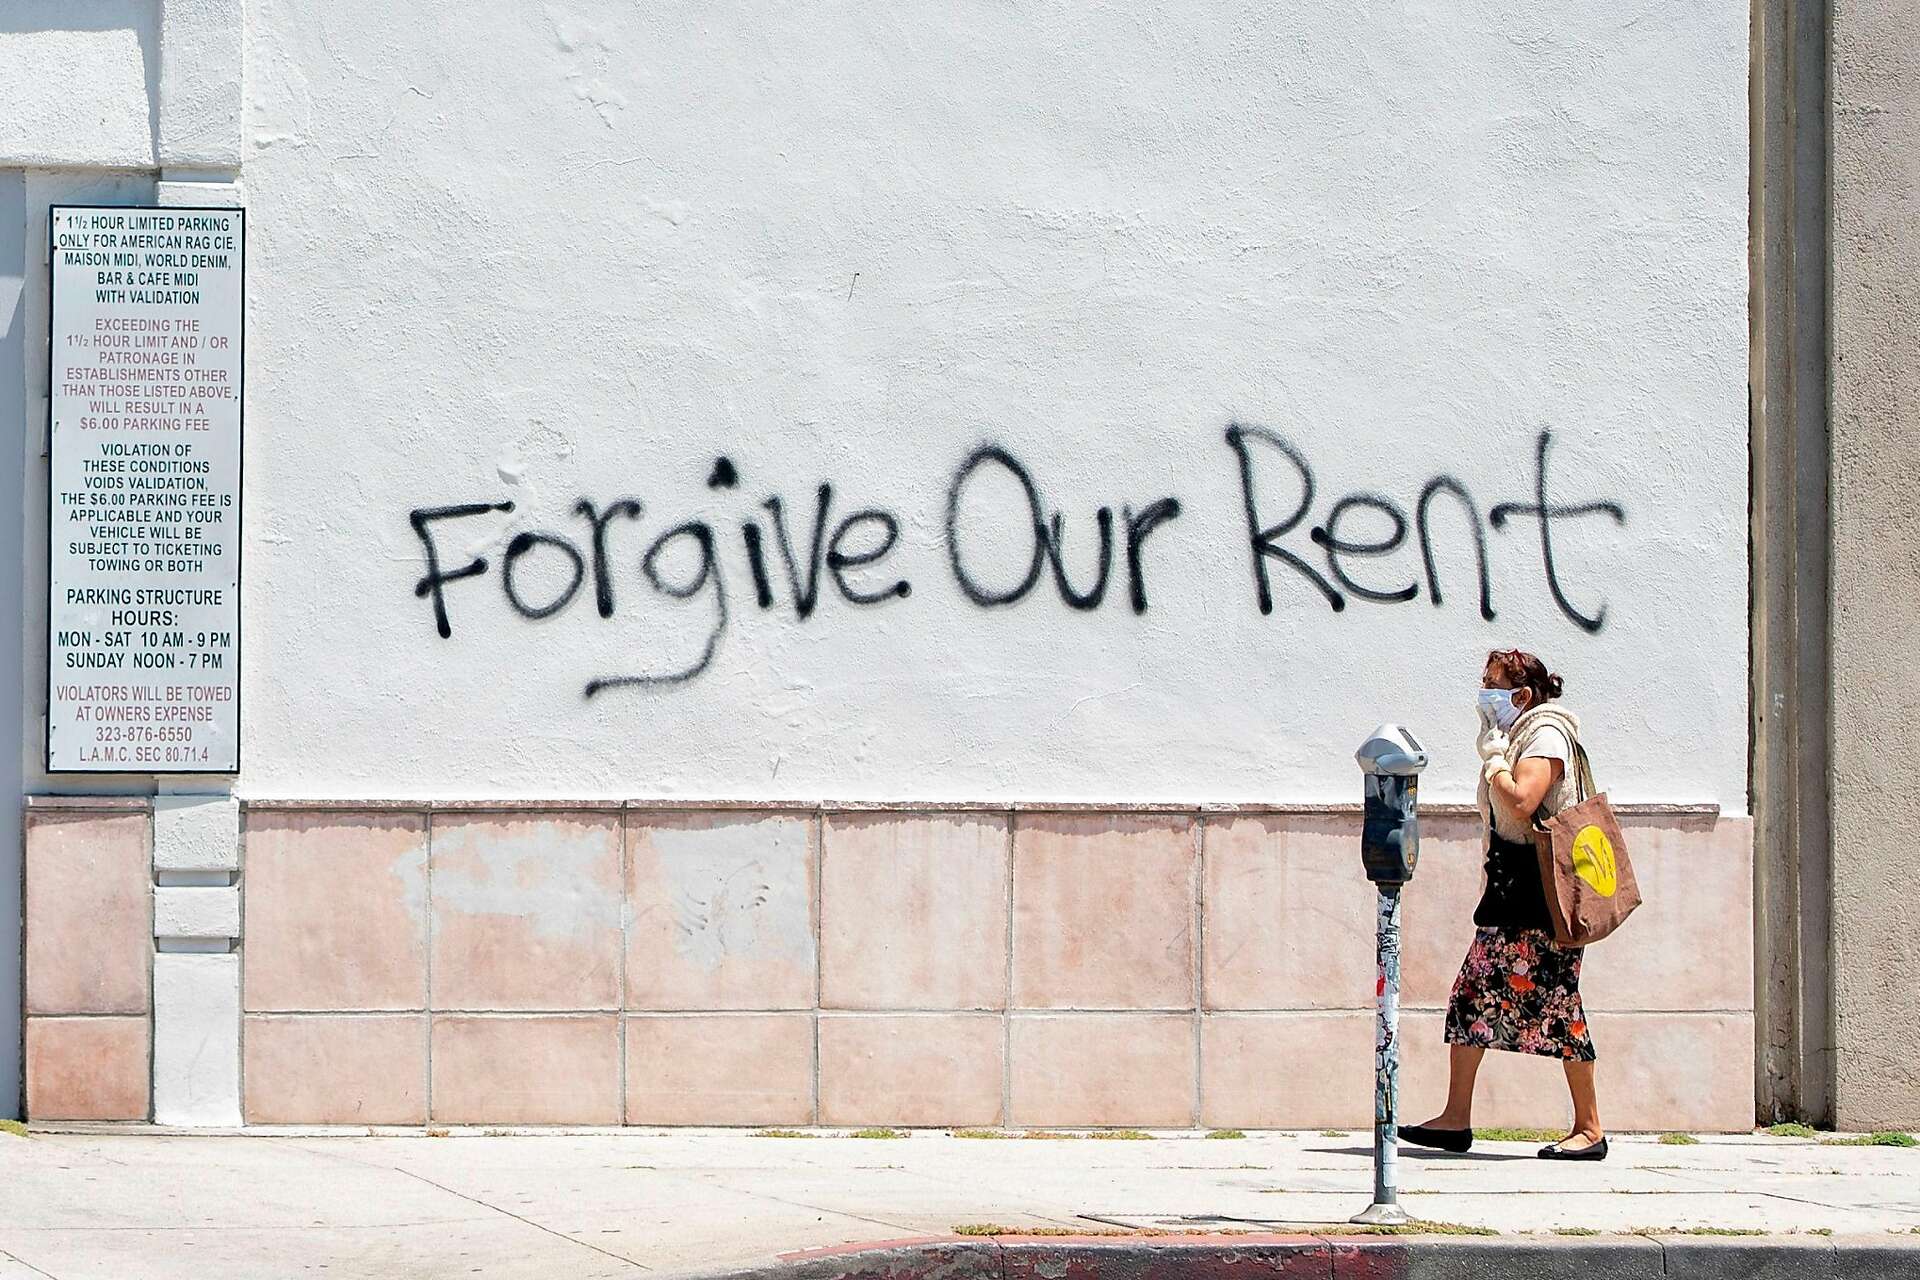 1 1/2 HOUR LIMITED PARKING
ONLY FOR AMERICAN RAG CIE,
MAISON MIDI, WORLD DENIM,
BAR & CAFE MIDI
WITH VALIDATION
EXCEEDING THE
1 1/2 HOUR LIMIT AND / OR
PATRONAGE IN
ESTABLISHMENTS OTHER
THAN THOSE LISTED ABOVE,
WILL RESULT IN A
$6.00 PARKING FEE
VIOLATION OF
THESE CONDITIONS
VOIDS VALIDATION,
THE $6.00 PARKING FEE IS
APPLICABLE AND YOUR
VEHICLE WILL BE
SUBJECT TO TICKETING
TOWING OR BOTH
PARKING STRUCTURE
HOURS:
MON - SAT 10 AM - 9 PM
SUNDAY NOON - 7 PM
VIOLATORS WILL BE TOWED
AT OWNERS EXPENSE
323-876-6550
L.A.M.C. SEC 80.71.4
Forgive Our Rent